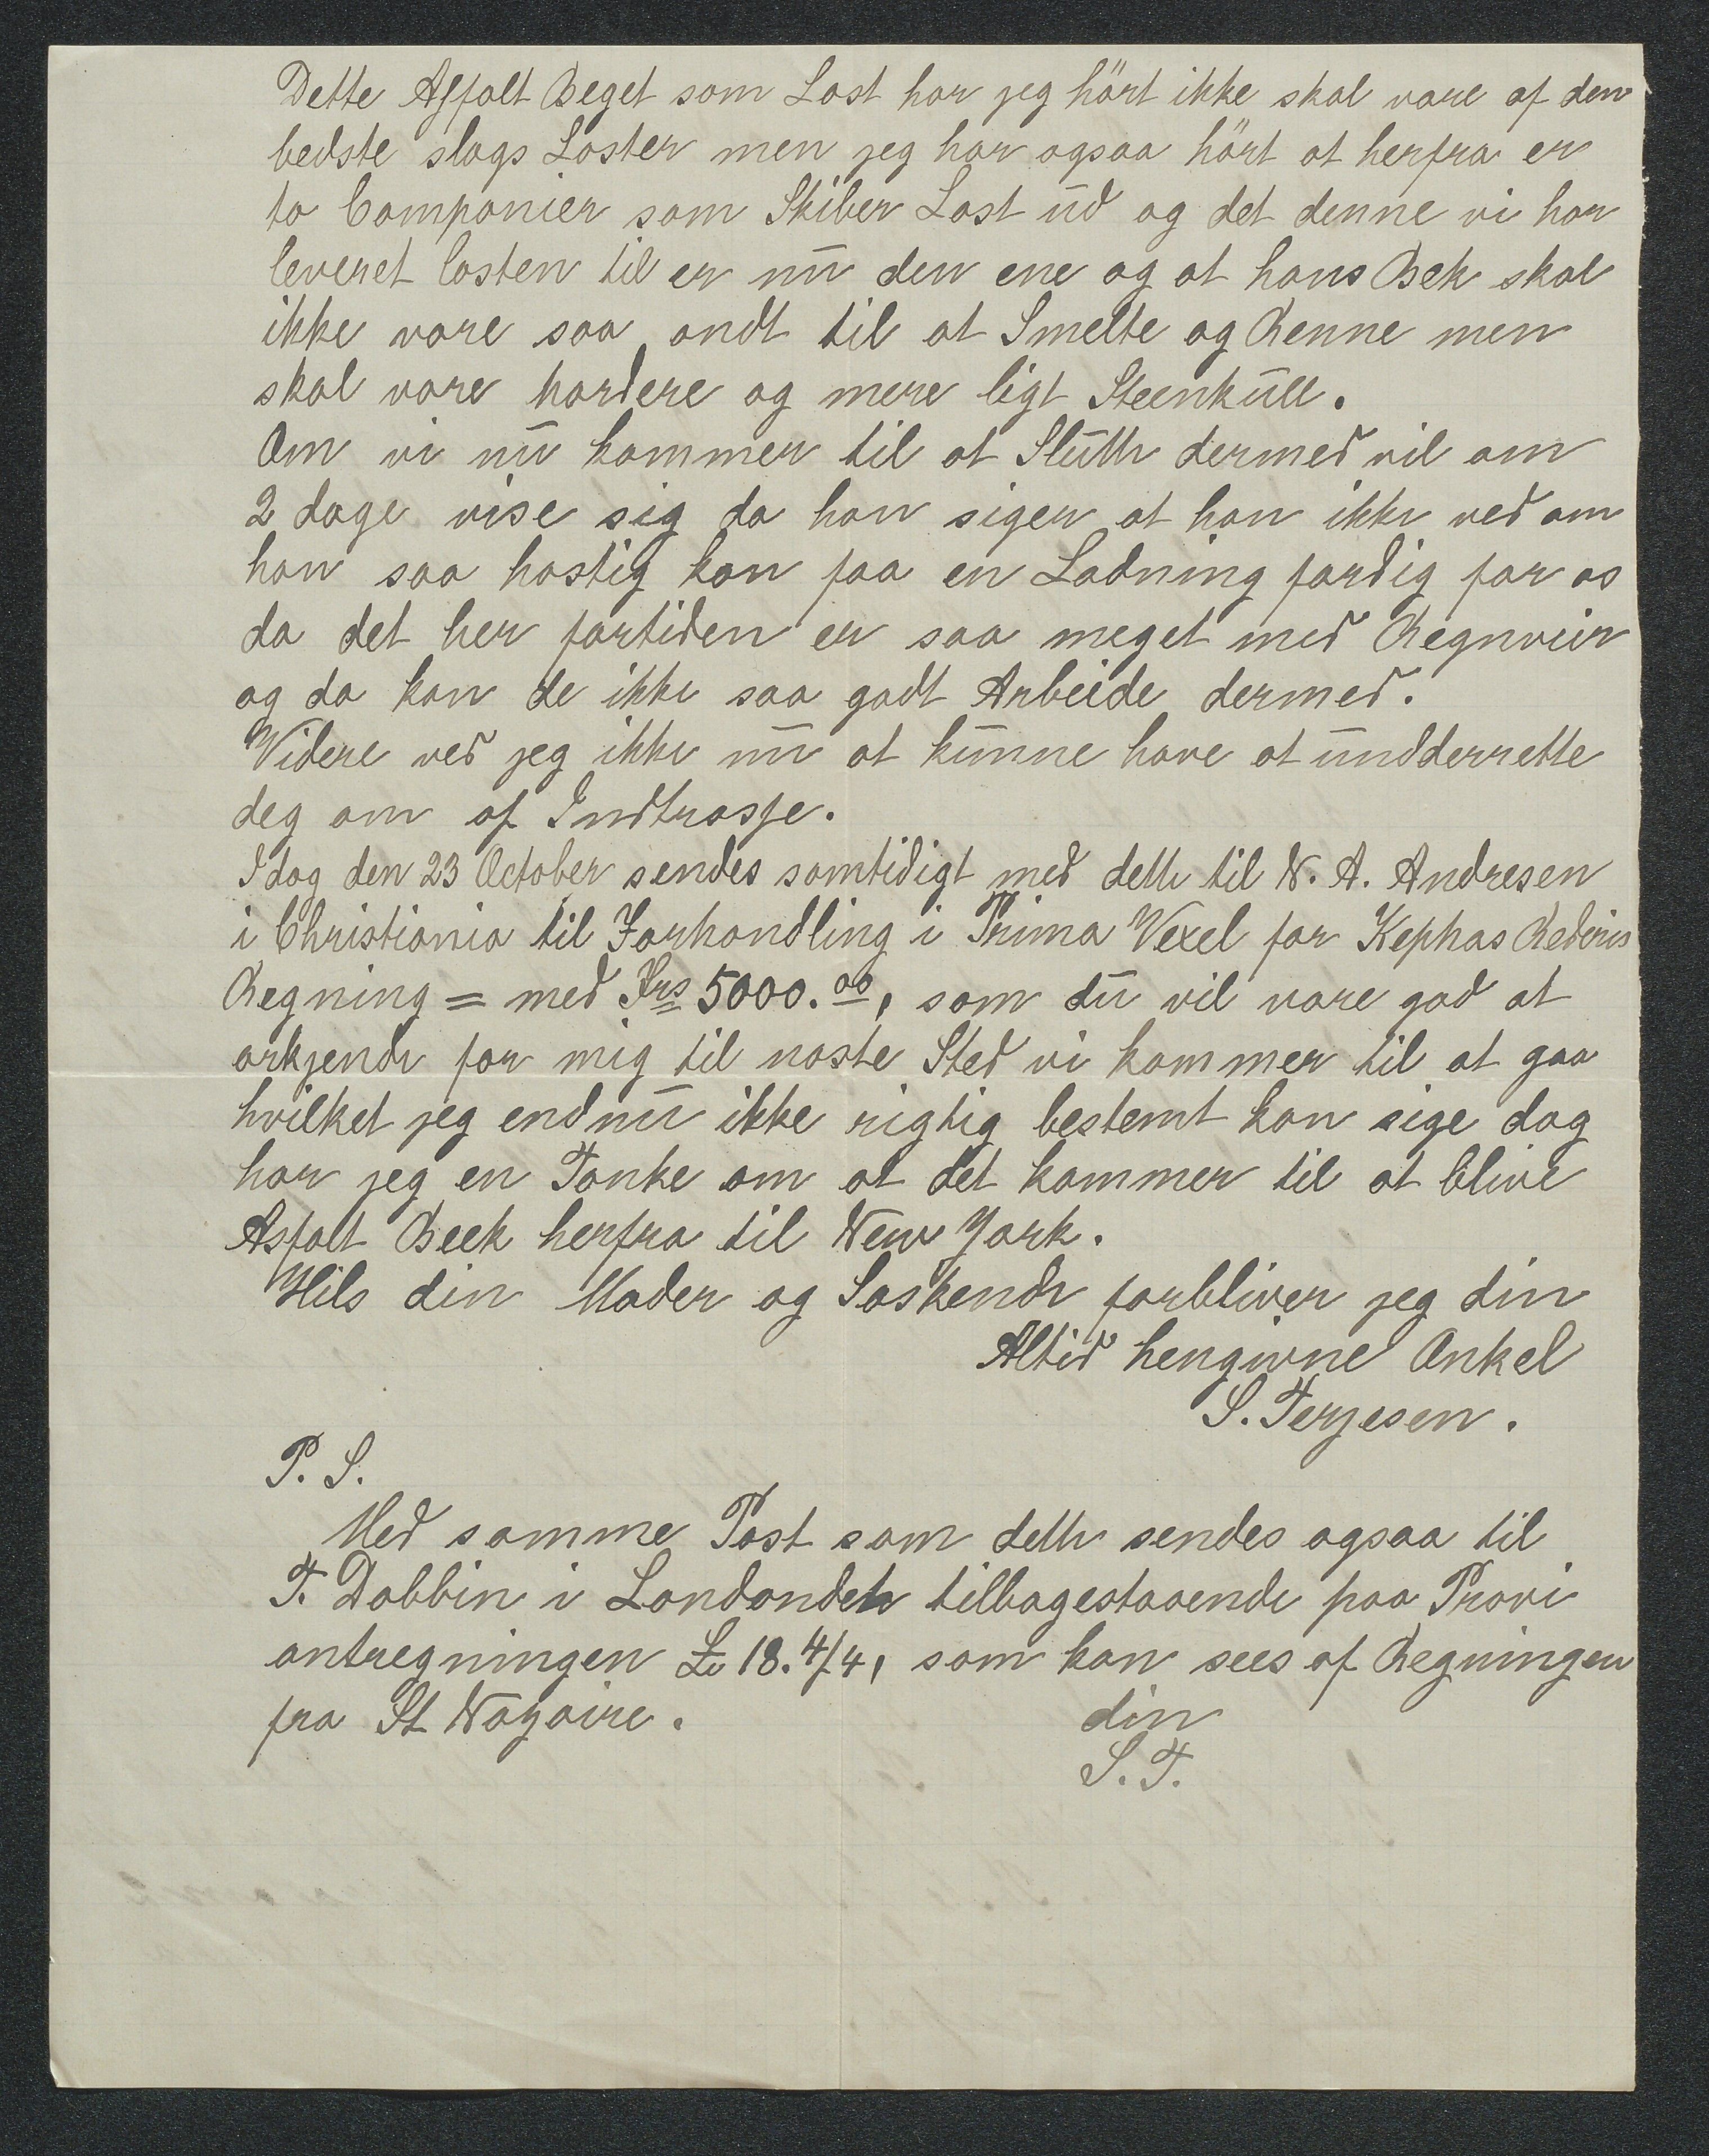 Dette Asfalt Beget som Last har jeg hört ikke skal vare af den
bedste slags Laster men jeg har ogsaa hört at herfra er
to Companier som Skiber Last ud og det denne vi har
leveret lasten til er nu den ene og at hans Bek skal
ikke vare saa ondt til at Smelte og Renne men
skal vare hardere og mere ligt Steenkull.
Om vi nu kommer til at Slutte dermed vil om
2 dage vise sig da han siger at han ikke ved om
han saa hastig kan faa en Ladning fardig for os
da det her fortiden er saa meget med Regnveir
og da kan de ikke saa godt Arbeide dermed.
Videre ved jeg ikke nu at kunne have at undderrette
deg om af Indtrasse.
Idag den 23 October sendes samtidigt med dette til N. A. Andresen
i Christiania til Forhandling i Prima Vexel for Kephas Rederies
Regning = med Frs 5000.00, som du vil vare god at
arkjende for mig til naste Sted vi kommer til at gaa
hvilket jeg endnu ikke rigtig bestemt kan sige dog
har jeg en Tanke om at det kommer til at blive
Asfalt Beek herfra til New York.
Hils din Moder og Soskende forbliver jeg din
Altid hengivne Onkel
S. Terjesen.
P. S.
Med samme Post som dette sendes ogsaa til
T. Dobbin i London det tilbagestaaende paa Provi
antregningen £ 18.4/4, som kan sees af Regningen
fra St Nazaire.
din
S. T.